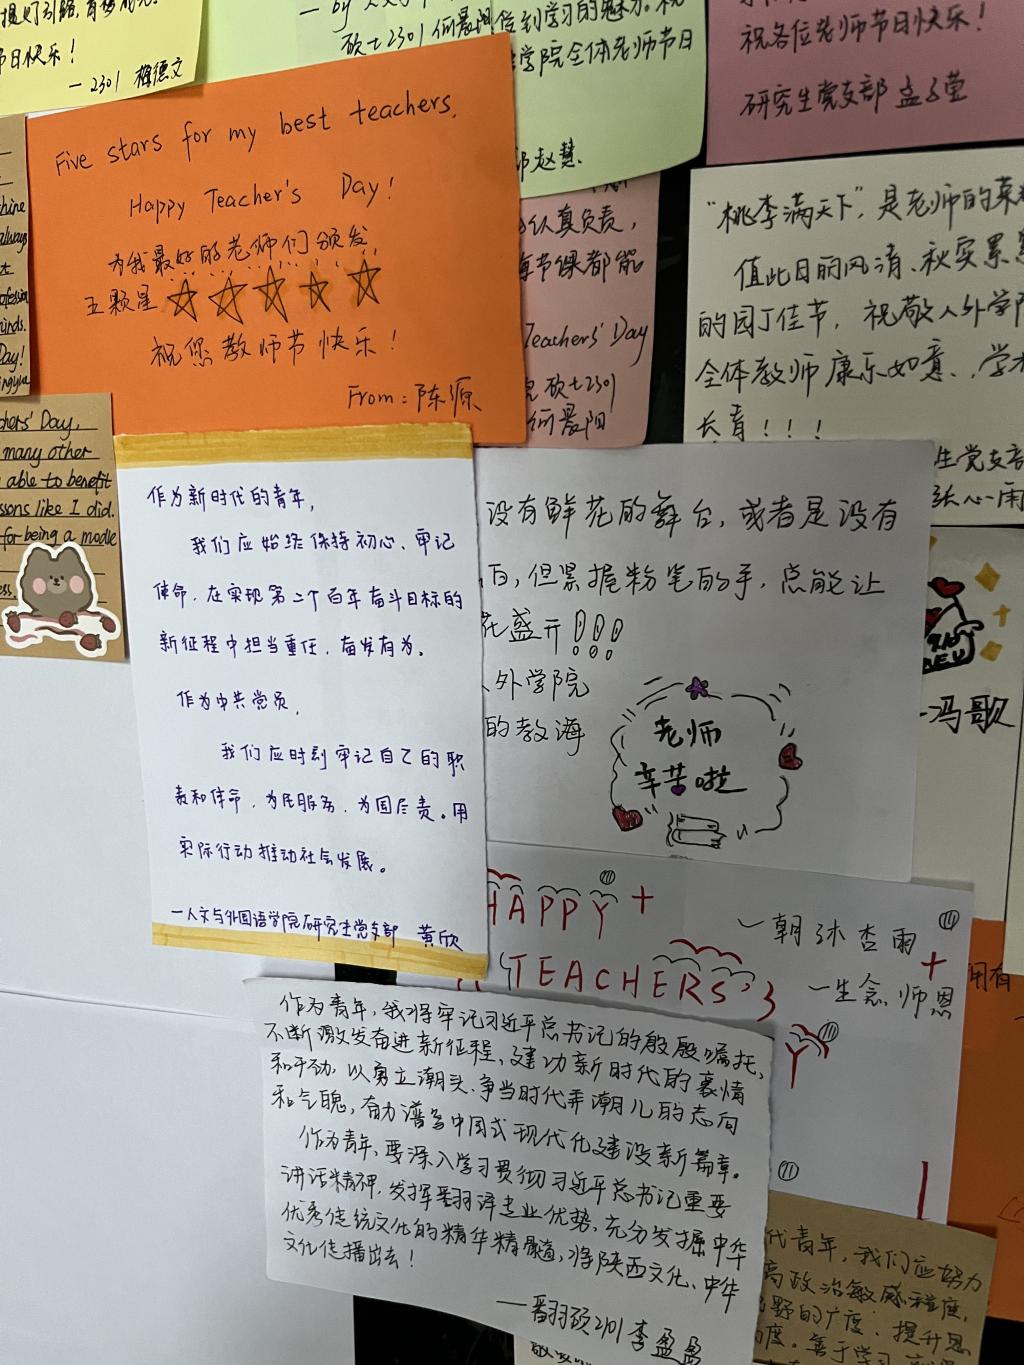 节日快乐！
—2301 梅德文
硕士2301 何晨阳
学院全体老师节日
赵慧
祝各位老师节日快乐！
研究生党支部 孟子莹
Five stars for my best teachers.
Happy Teacher's Day!
为我最好的老师们颁发
五颗星
祝您教师节快乐！
From：陈源
认真负责，
每节课都能
Teachers' Day
硕士2301
何晨阳
"桃李满天下"，是老师的
值此日丽风清、秋实累
的园丁佳节，祝敬人外学院
全体教师康乐如意、学术
长青！！！
生党支部
张心雨
always
minds.
Day!
chers' Day,
many other
able to benefit
ssons like I did.
for being a modle
作为新时代的青年，
我们应始终保持初心、牢记
使命，在实现第二个百年奋斗目标的
新征程中担当重任，奋发有为。
作为中共党员，
我们应时刻牢记自己的职
责和使命，为民服务，为国尽责。用
实际行动推动社会发展。
—人文与外国语学院研究生党支部 黄欣
没有鲜花的舞台，或者是没有
白，但紧握粉笔的手，总能让
花盛开！！！
外学院
的教诲
老师
辛苦啦
冯歌
HAPPY
TEACHERS'
Y
一朝沐杏雨
一生念师恩
用有
作为青年，我将牢记习近平总书记的殷殷嘱托，
不断激发奋进新征程，建功新时代的豪情
和干劲，以勇立潮头、争当时代弄潮儿的志向
和气魄，奋力谱写中国式现代化建设新篇章。
作为青年，要深入学习贯彻习近平总书记重要
讲话精神，发挥翻译专业优势，充分发掘中华
优秀传统文化的精华精髓，将陕西文化、中华
文化传播出去！
—翻硕2101 李盈盈
代青年，我们应努力
高政治敏感程度，
视野的广度，提升思
度。善于学习